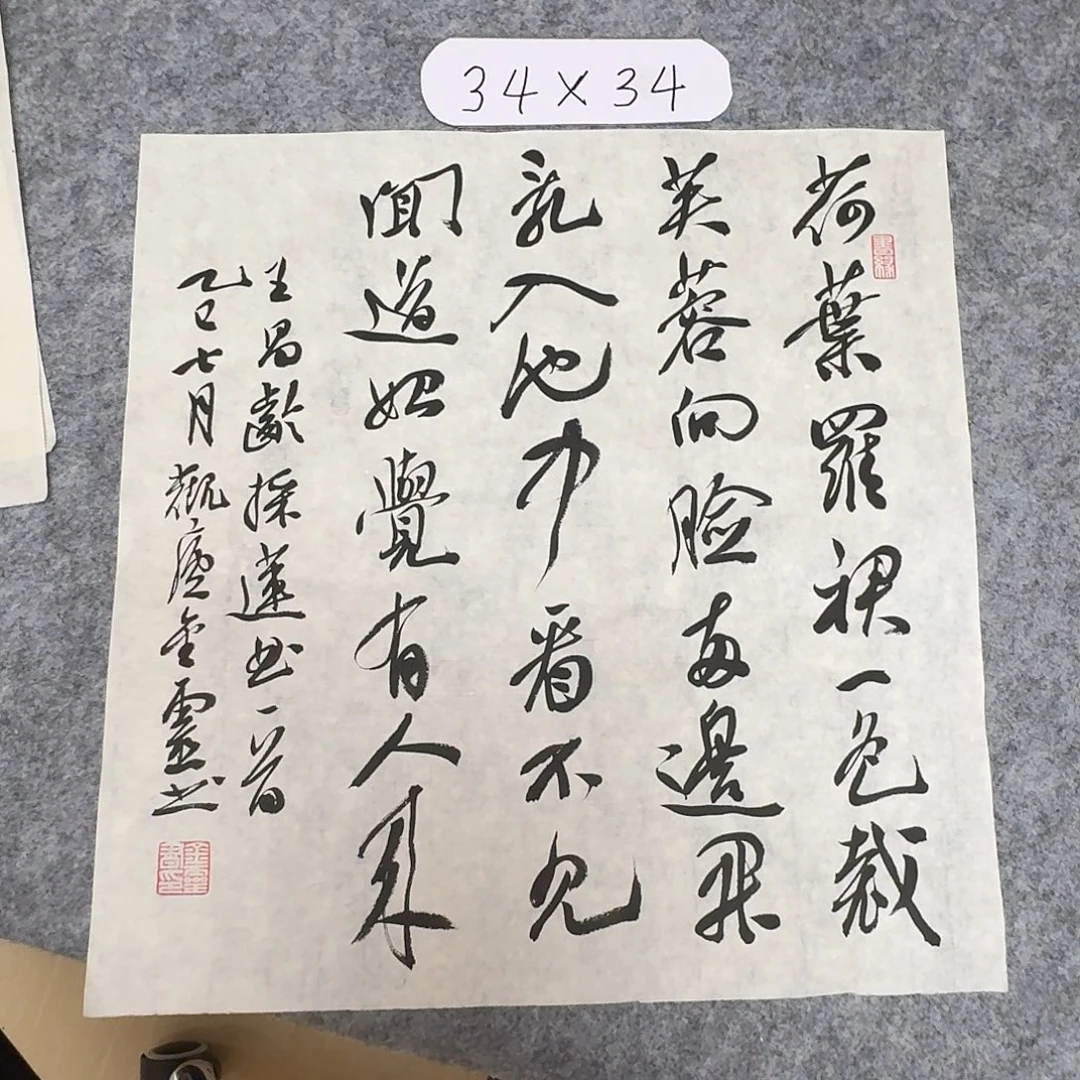 34×34
荷葉羅裙一色裁
芙蓉向臉兩邊開
亂入池中看不見
聞道始覺有人來
王昌齡採蓮曲一首
乙巳七月觀廬金靈书